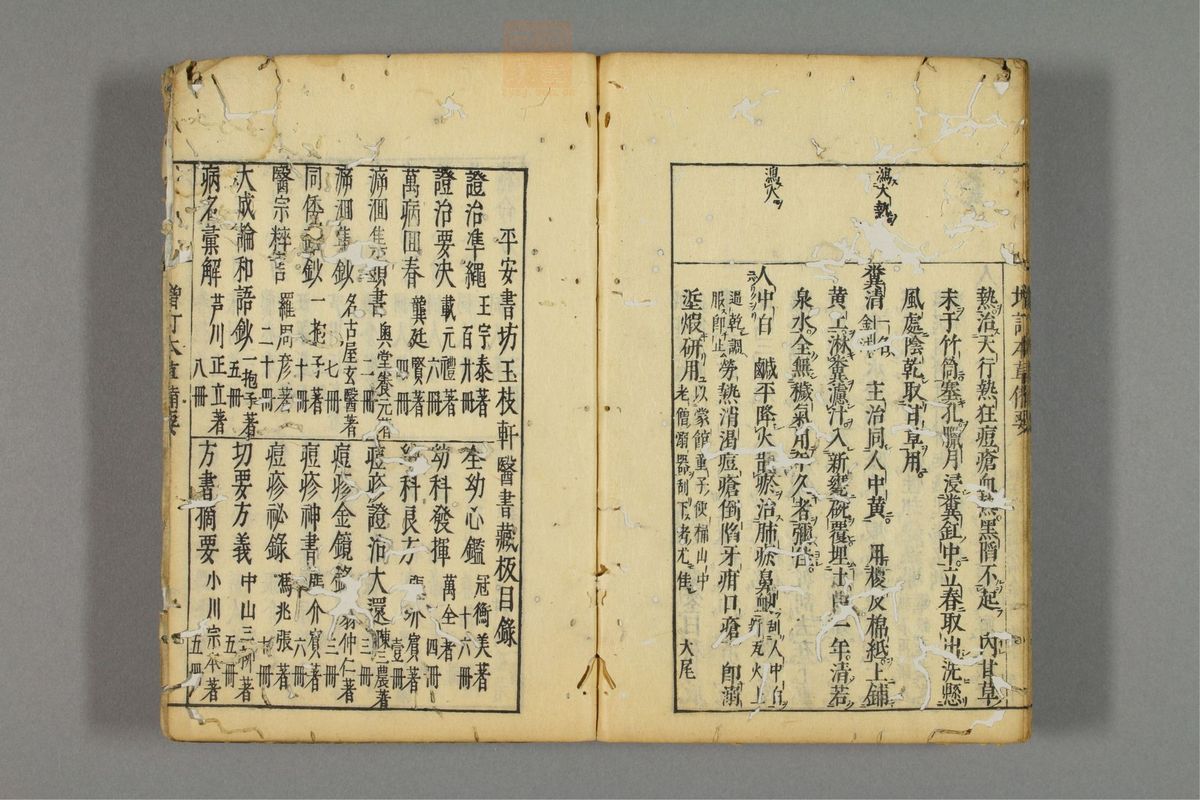 增訂本草備要
瀉大熱
瀉火
熱治天行熱狂痘瘡血熱黑陷不起 內甘草
末于竹筒塞孔臘月浸糞缸中立春取出洗懸
風處陰乾取甘草用
糞清 主治同人中黃 用糭皮棉紙上鋪
黃土淋糞濾汁入新甕碗覆埋土中一年清若
泉水全無穢氣用年久者彌佳
人中白 鹹平降火散瘀治肺瘀鼻衄 刮人中白 瓦火上
逼乾調服即止 勞熱消渴痘瘡倒陷牙疳口瘡 即溺
垽煅研用 以蒙館童子便桶山中老僧溺器刮下者尤佳 大尾
平安書坊玉枝軒醫書藏板目錄
證治準繩 王宇泰著 百廿冊
證治要決 戴元禮著 六冊
萬病回春 龔廷賢著 四冊
濟洄集頭書 二冊
濟洄集鈔 名古屋玄醫著 七冊
同 鈔 一抱子著 十冊
醫宗粹言 羅周彥著 二十冊
大成論和語鈔 一抱子著 五冊
病名彙解 芦川正立著 八冊
全幼心鑑 冠衡美著 十六冊
幼科發揮 萬全著 四冊
幼科良方 著 壹冊
痘疹證治大還 陳三農著 三冊
痘疹金鏡錄 翁仲仁著 三冊
痘疹神書 介賓著 六冊
痘疹祕錄 馮兆張著 冊
切要方義 中山三柳著 五冊
方書摘要 小川宗本著 五冊
增訂本草備要